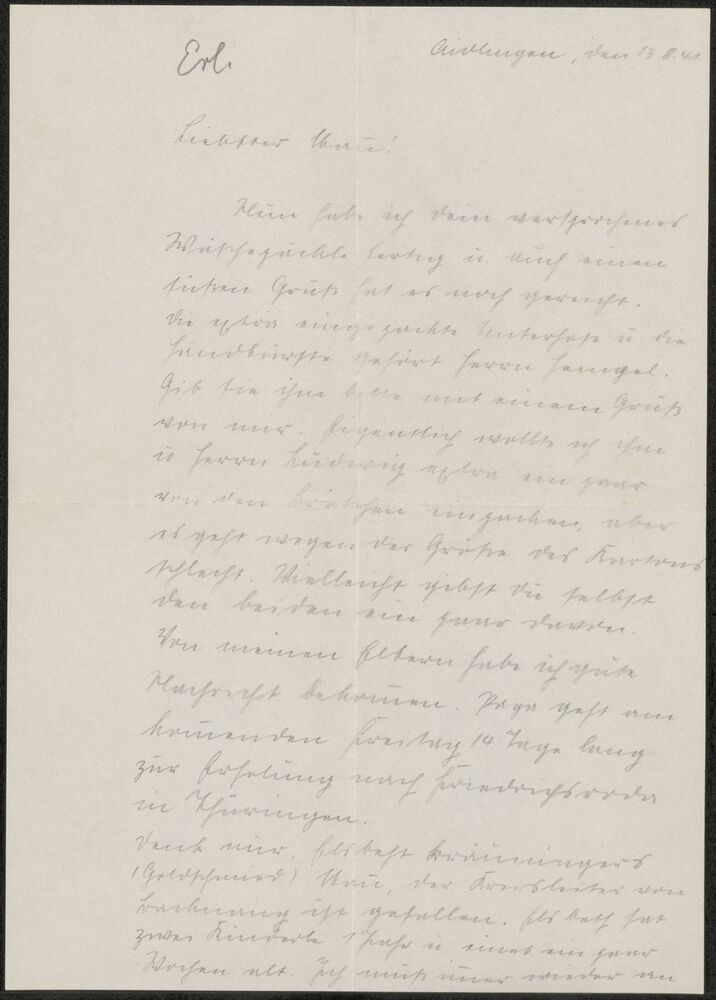 Erl.
Aidlingen, den 13.8.41
Liebster Mau!
Nun habe ich Dein versprochenes
Wäschepäckle fertig u. auch einen
süßen Gruß hat es noch gereicht.
Die extra eingepackte Unterhose u. die
Handbürste gehört Herrn Hempel.
Gib sie ihm bitte mit einem Gruß
von mir. Eigentlich wollte ich ihm
u. Herrn Ludwig extra ein paar
von den Brötchen einpacken, aber
es geht wegen der Größe des Kartons
schlecht. Vielleicht gibst Du selbst
den beiden ein paar davon.
Von meinen Eltern habe ich gute
Nachricht bekommen. Papa geht am
kommenden Freitag 14 Tage lang
zur Erholung nach Friedrichsroda
in Thüringen.
Denk nur, Elsbeth
(Goldschmied) Mau, der Kreisleiter von
Backnang ist gefallen. Elsbeth hat
zwei Kinderle 1 Jahr u. eines ein paar
Wochen alt. Ich muß immer wieder an